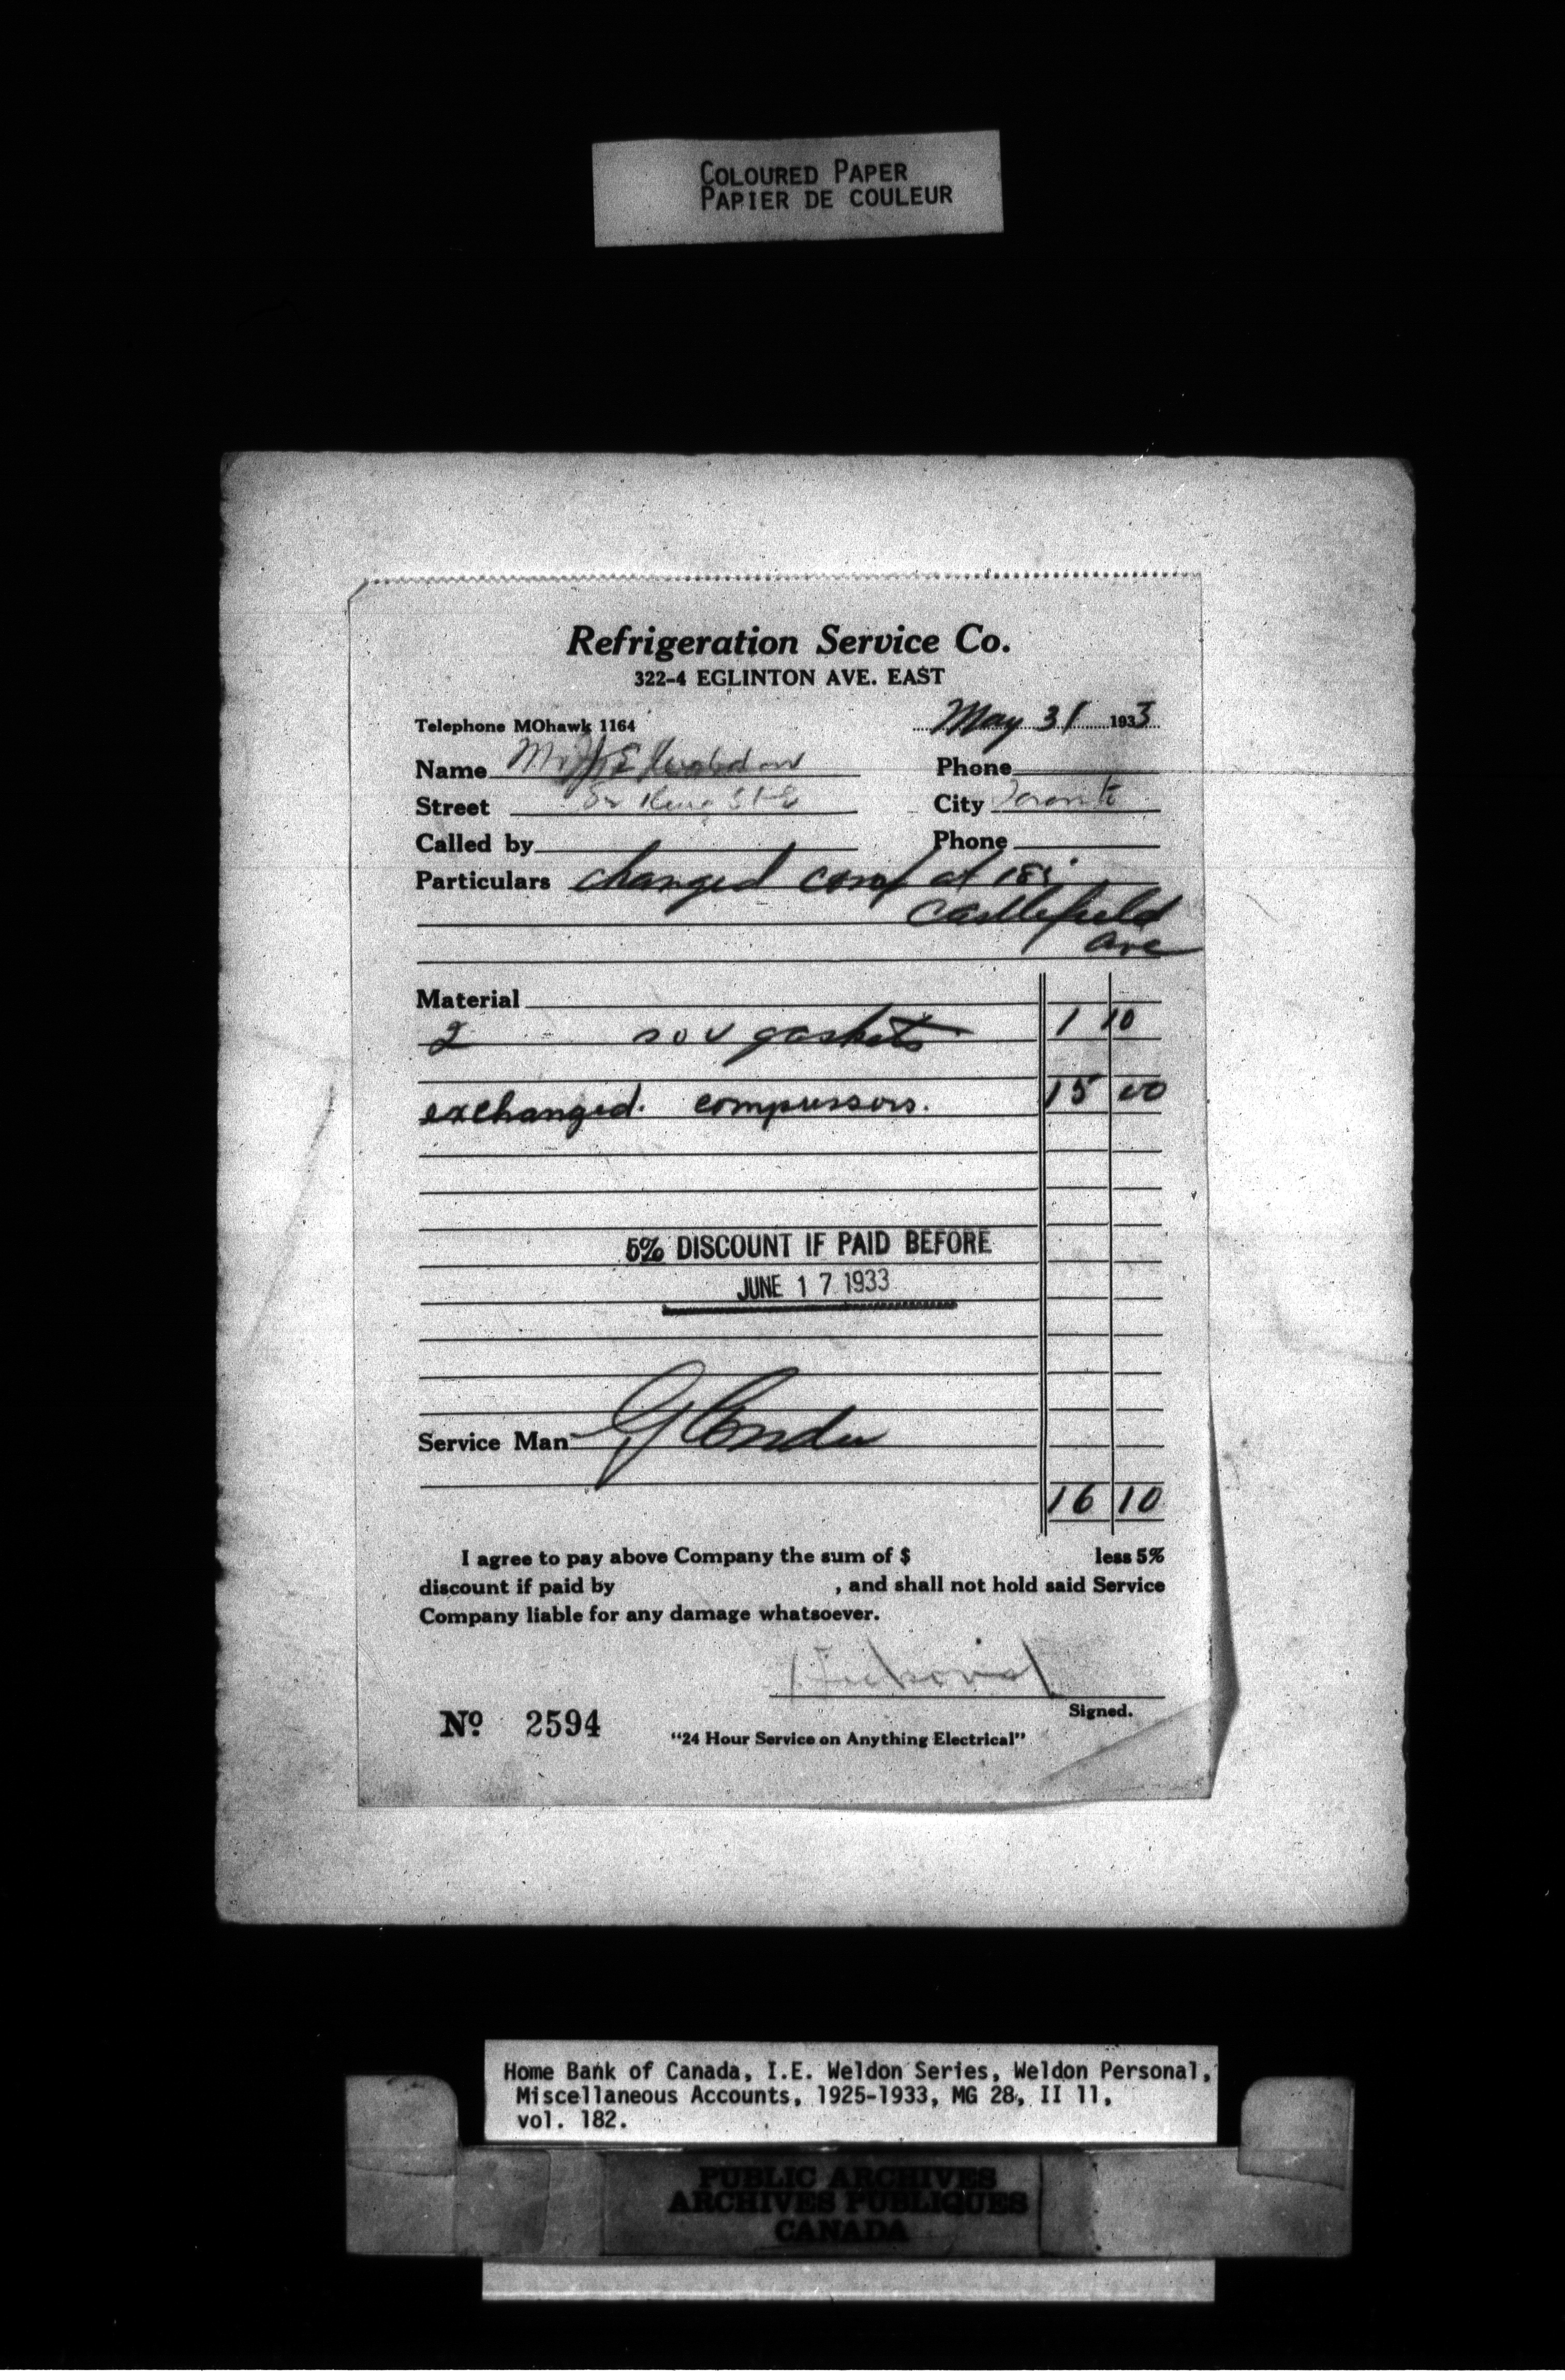 COLOURED PAPER
PAPIER DE COULEUR
Refrigeration Service Co.
322-4 EGLINTON AVE. EAST
Telephone MOhawk 1164 May 31 1933
Name Phone
Street King St E City Toronto
Called by Phone
Particulars changed comp at
Castlefield
Ave
Material
2 sov gaskets 1 10
exchanged. compressors. 15 00
5% DISCOUNT IF PAID BEFORE
JUNE 17 1933
Service Man
16 10
I agree to pay above Company the sum of $ less 5%
discount if paid by , and shall not hold said Service
Company liable for any damage whatsoever.
Signed.
No. 2594
"24 Hour Service on Anything Electrical"
Home Bank of Canada, I.E. Weldon Series, Weldon Personal,
Miscellaneous Accounts, 1925-1933, MG 28, II 11,
vol. 182.
PUBLIC ARCHIVES
ARCHIVES PUBLIQUES
CANADA